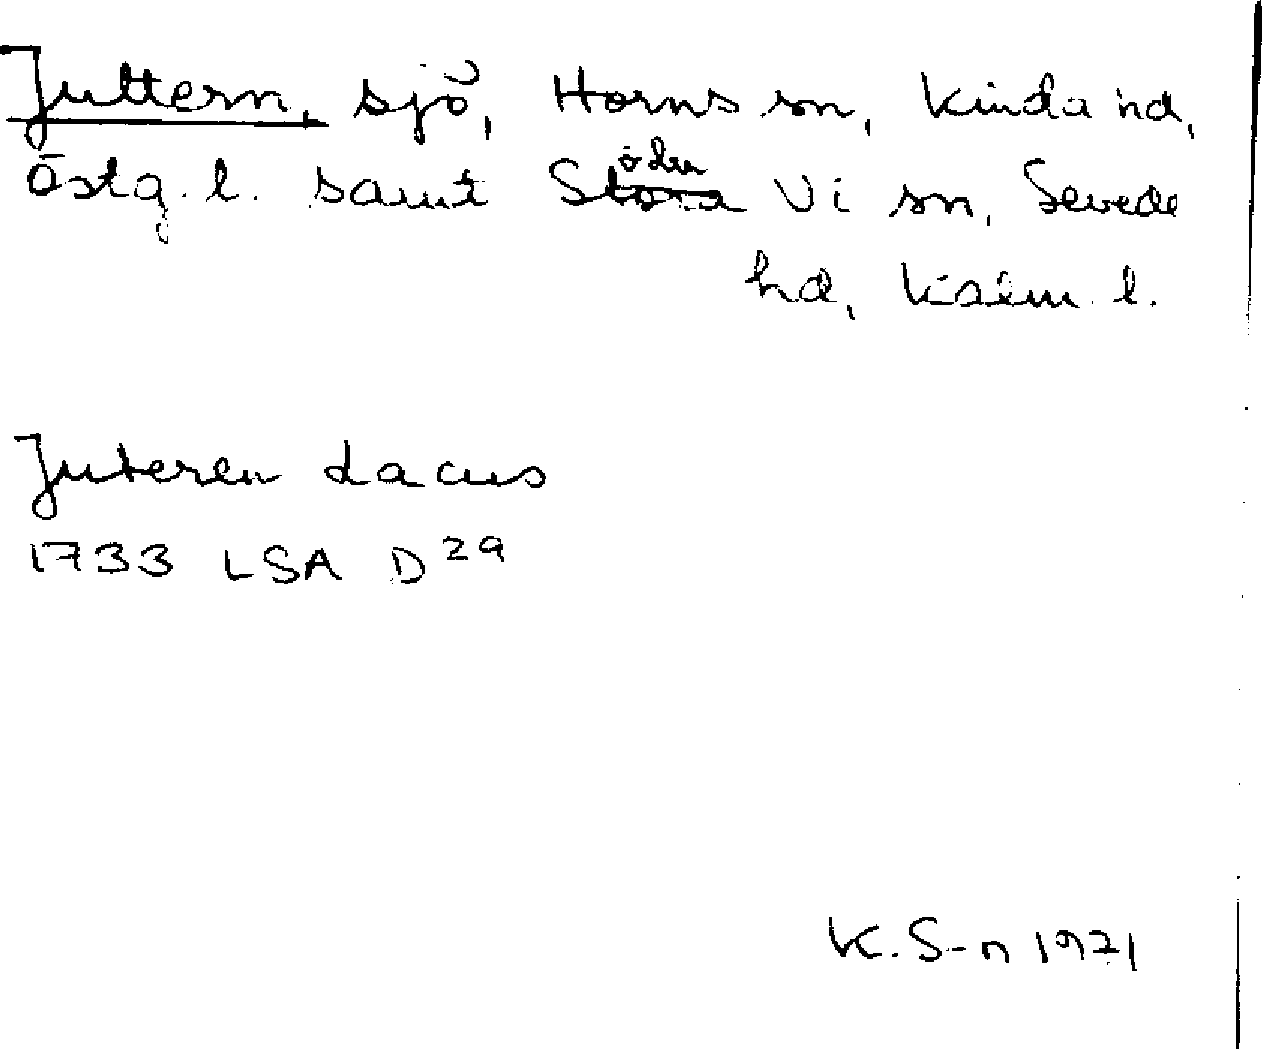 Juttern, sjö, Horns sn, Kinda hd,
Östg. l. samt Södra Vi sn, Sevede
hd, Kalm. l.
Juteren Lacus
1733 LSA D 29
K. S-n 1971